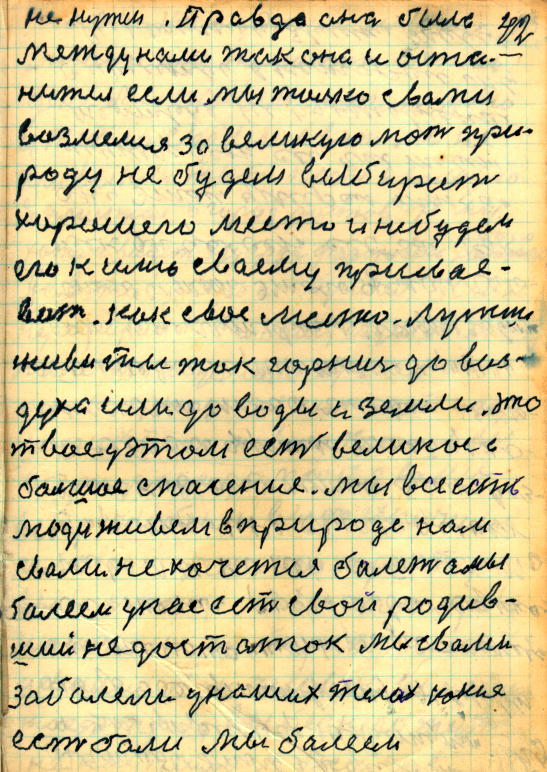 не нужен. Правда она была 42
между нами так она и оста-
нится если мы толко свами
возмемся за великую мат при-
роду не будем выбират
хорошего место и небудем
его к
своему присвае-
ват. как свое место. Лутше
живи ты так
до воз-
духа или до воды и земли. это
твое у этом ест великое и
балшое спасение. мы все есть
люди живем в природе нам
свами не хочется балет а мы
балеем у нас ест свой родив-
ший недостаток мы свами
заболели у наших телах какие
ест бали мы балеем